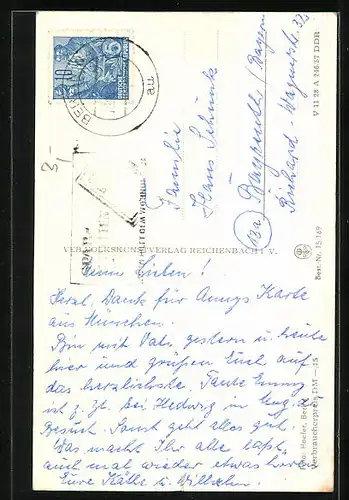 Meine Lieben!
Herzl. Dank für Annys Karte
aus München.
Bin mit Vati gestern u. heute
hier und grüßen Euch auf
das herzlichste. Tante Emmy
ist z. Zt. bei Hedwig in
Besuch. Sonst geht alles gut.
Was macht Ihr alle laßt
auch mal wieder etwas hören
Eure Käthe u. Willichen.
Familie
Hans Schunk
(13a) Bayreuth / Bayern
Richard-Wagnerstr. 32
VEB VOLKSKUNSTVERLAG REICHENBACH I. V.
V 11 28 A 846/57 DDR
Best.-Nr. 15/169
Foto: Hoefer, Berlin
Verbraucherpreis DM —,15
10
BERLIN
au
3,-